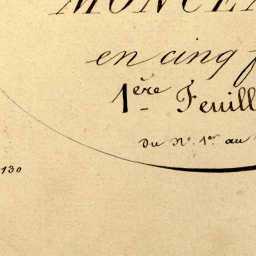 MONCE
en cinq f
1ère Feuill
du N° 1er au
130